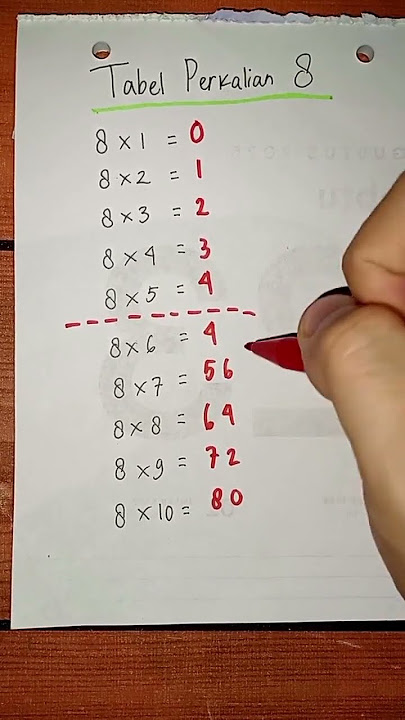 Tabel Perkalian 8
8 × 1 = 0
8 × 2 = 1
8 × 3 = 2
8 × 4 = 3
8 × 5 = 4
8 × 6 = 4
8 × 7 = 56
8 × 8 = 64
8 × 9 = 72
8 × 10 = 80